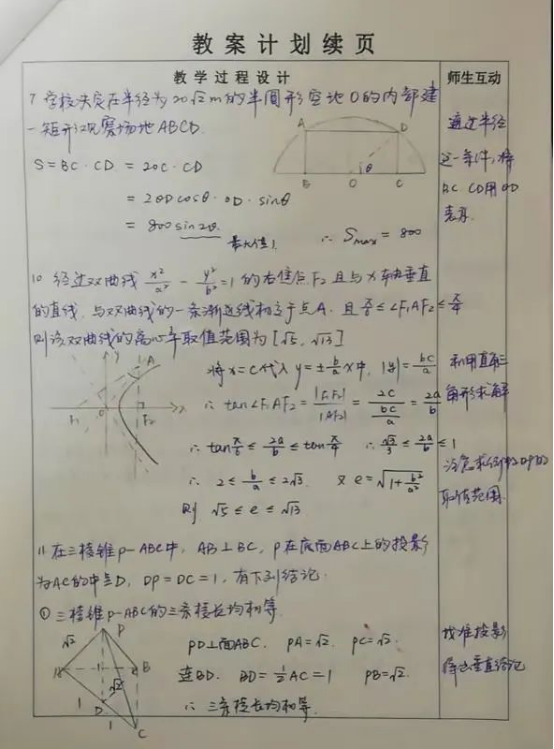 教案计划续页
教学过程设计
师生互动
7 学校决定在半径为20√2m的半圆形空地O的内部建
一矩形观赛场地ABCD.
A D
B O θ C
S=BC·CD = 2OC·CD
= 2ODcosθ·OD·sinθ
= 800sin2θ.
最大值1
∴ Smax = 800
通过半径
这一条件,将
BC CD用OD
表示
10 经过双曲线 x²/a² - y²/b² =1 的右焦点F₂且与x轴垂直
的直线,与双曲线的一条渐近线相交于点A,且π/6 ≤ ∠F₁AF₂ ≤ π/4
则该双曲线的离心率取值范围为[√5, √13]
Y A
F₁ O F₂ x
将x=c代入y=±b/a x中, |y|= bc/a
∴ tan∠F₁AF₂ = |F₁F₂|/|AF₂| = 2c/(bc/a) = 2a/b
∴ tanπ/6 ≤ 2a/b ≤ tanπ/4 ∴ √3/3 ≤ 2a/b ≤ 1
∴ 2 ≤ b/a ≤ 2√3. 又 e = √(1+b²/a²)
则 √5 ≤ e ≤ √13
利用直角三
角形求解
取值范围.
11 在三棱锥P-ABC中, AB⊥BC, P在底面ABC上的投影
为AC的中点D, DP=DC=1, 有下列结论:
① 三棱锥P-ABC的三条棱长均相等.
P
√2
A 1 B
D √2
1
1 C
PD⊥面ABC. PA=√2. PC=√2.
连BD. BD=1/2AC=1 PB=√2.
∴ 三条棱长均相等.
找准投影
得出垂直结论